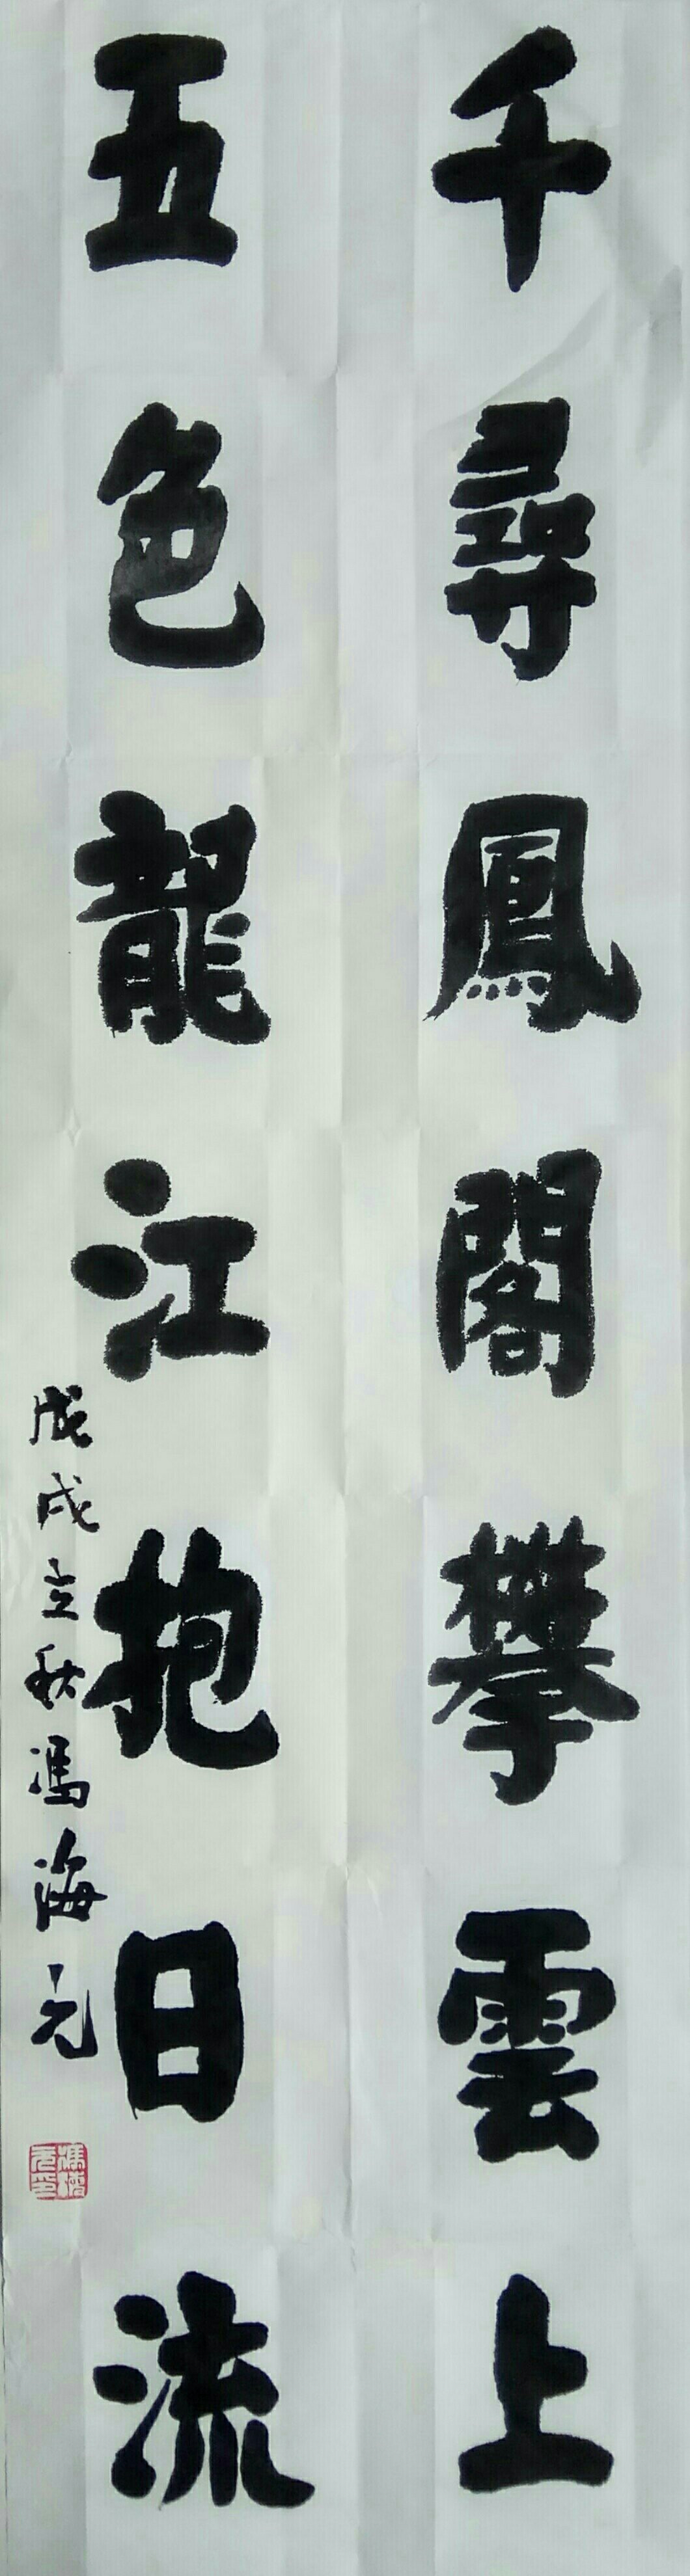 千尋鳳閣攀雲上
五色龍江抱日流
戊戌立秋馮海元
馮海元印